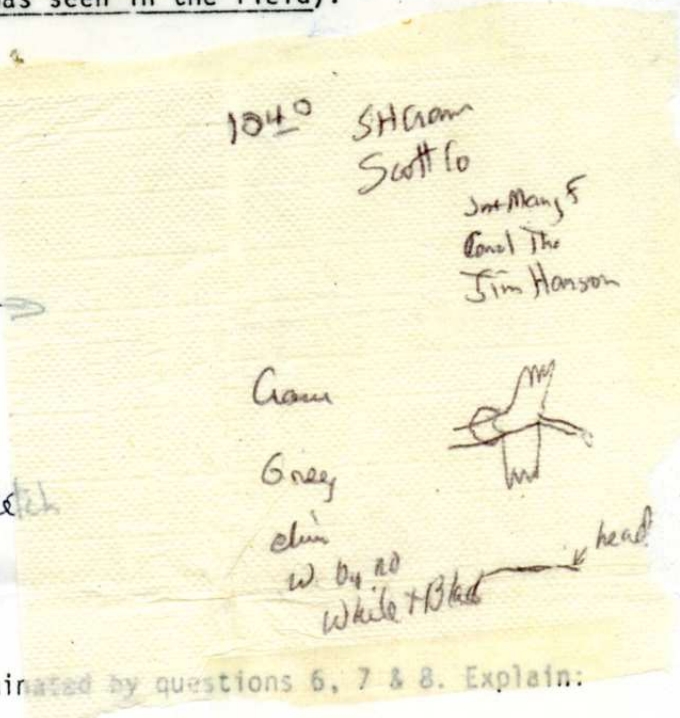 as seen in the field).
10 40 SH Crane
Scott Co
Jim Hanson
Crane
Grey
chin
W by no
White + Black
head
inated by questions 6, 7 & 8. Explain: